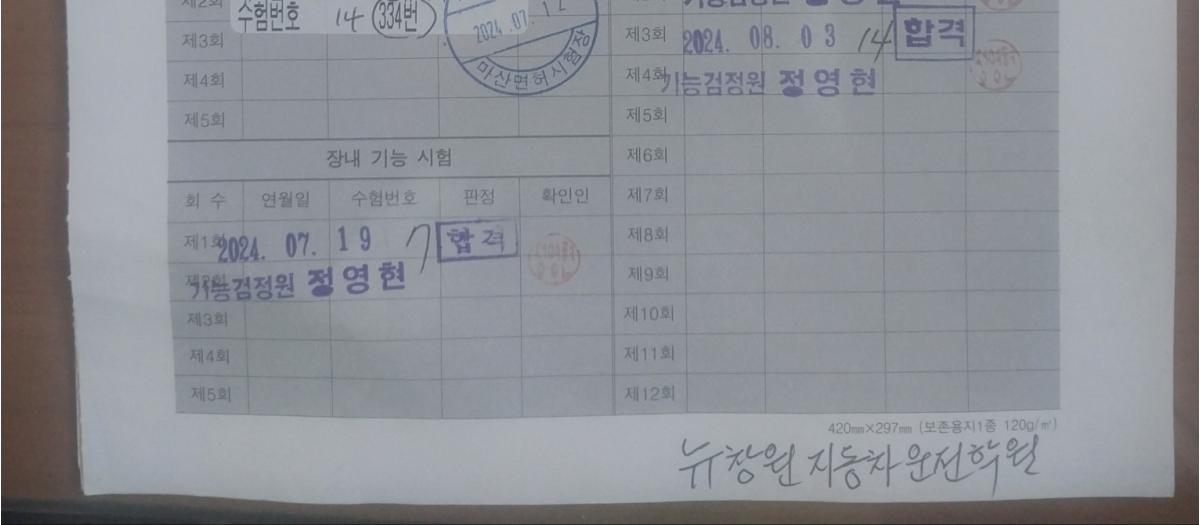 제2회
수험번호 14 334번
2024. 07. 12
마산면허시험장
제3회
제4회
제5회
장내 기능 시험
회 수 연월일 수험번호 판정 확인인
제1회 2024. 07. 19 7 합격
제2회 기능검정원 정영현
제3회
제4회
제5회
기능검정원 정영현
제3회 2024. 08. 03 14 합격
제4회 기능검정원 정영현
제5회
제6회
제7회
제8회
제9회
제10회
제11회
제12회
420㎜×297㎜ (보존용지1종 120g/㎡)
뉴창원 자동차운전학원